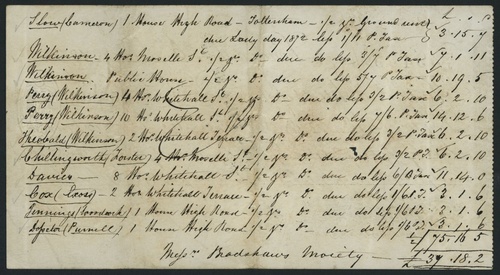 Slow (Cameron) 1 House High Road - Tottenham - ½ yr Ground rent £ s. d.
due Lady day 1872 less 1/11 P. Tax 3. 15. 7
Wilkinson - 4 Hos. Moselle St. ½ yr Do due do less 3/7 P. Tax 7. 1. 11
Wilkinson Public House - ½ yr Do due do less 5/7 P. Tax - 10. 19. 5
Perry (Wilkinson) 4 Hos. Whitehall St. ½ yr Do - due do less 3/2 P. Tax 6. 2. 10
Perry (Wilkinson) 10 Hos. Whitehall St. ½ yr Do - due do less 7/6 P. Tax 14. 12. 6
Theobald (Wilkinson) 2 Hos. Whitehall Terrace - ½ yr Do - due do less 3/2 P. Tax 6. 2. 10
Chillingworth (Forster) 4 Hos. Moselle St. - ½ yr Do. due do less 3/2 P. T. 6. 2. 10
Davies - 8 Hos. Whitehall St. - ½ yr Do. due do less 6/ P. Tax 11. 14. 0
Cox (Cross) - 2 Hos. Whitehall Terrace - ½ yr Do. due do less 1/6 P. T. 3. 1. 6
Jennings ( ) 1 House High Road - ½ yr Do. due do less 1/6 P. T. 3. 1. 6
(Purnell) 1 House High Road - ½ yr Do. due do less 1/6 P. T. 3. 1. 6
£ 75. 16. 5
Messrs. Bradshaws Moiety £ 37. 18. 2